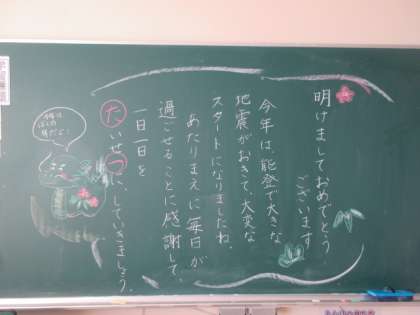 明けましておめでとう
ございます
今年は能登で大きな
地震がおきて、大変な
スタートになりましたね。
あたりまえに毎日が
過ごせることに感謝して、
一日一日を
たいせつに、していきましょう。
今年は